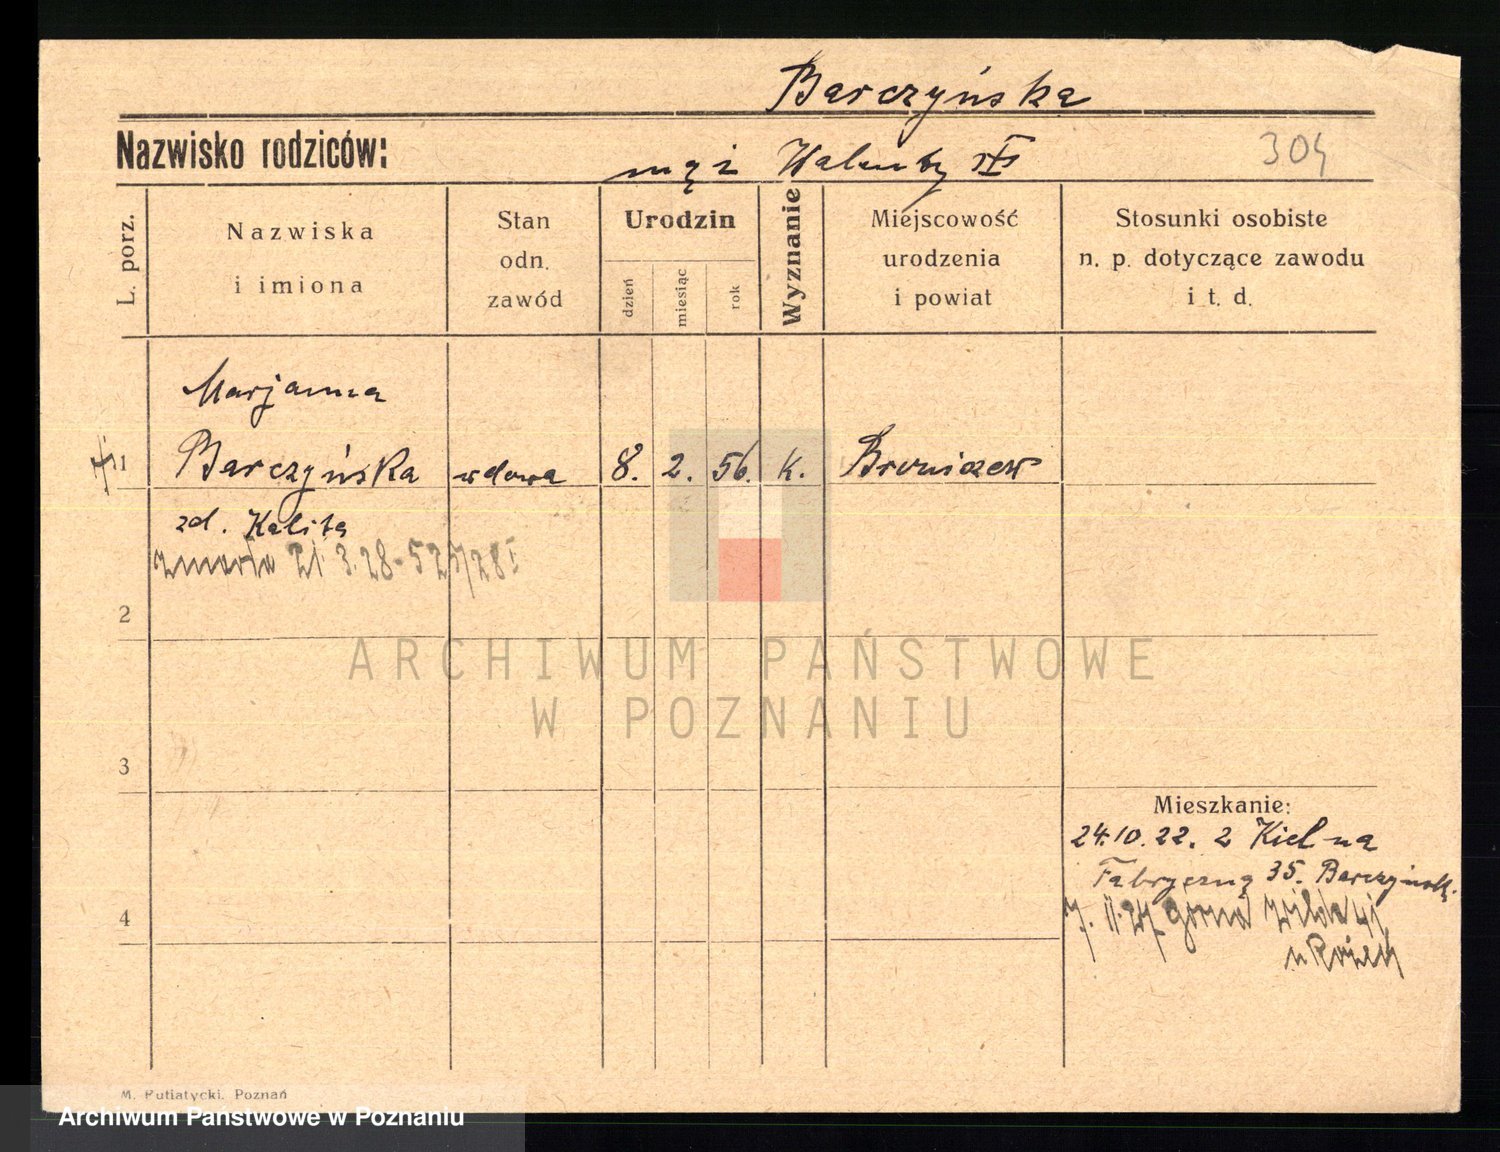 Barczyńska
Nazwisko rodziców:
mąż Walenty
304
L. porz.
Nazwiska
i imiona
Stan
odn.
zawód
Urodzin
dzień
miesiąc
rok
Wyznanie
Miejscowość
urodzenia
i powiat
Stosunki osobiste
n. p. dotyczące zawodu
i t. d.
Marjanna
1 Barczyńska wdowa 8. 2. 56. K. Broniszew
zd. Kalita
zmarła 21 3.28 - 525/28 I
2
ARCHIWUM PAŃSTWOWE
W POZNANIU
3
Mieszkanie:
24.10.22. z Kiel na
Fabryczną 35. Barczyńsk.
4
7. 11.27 Górna Wilda 41
u Rożek
M. Putiatycki, Poznań
Archiwum Państwowe w Poznaniu